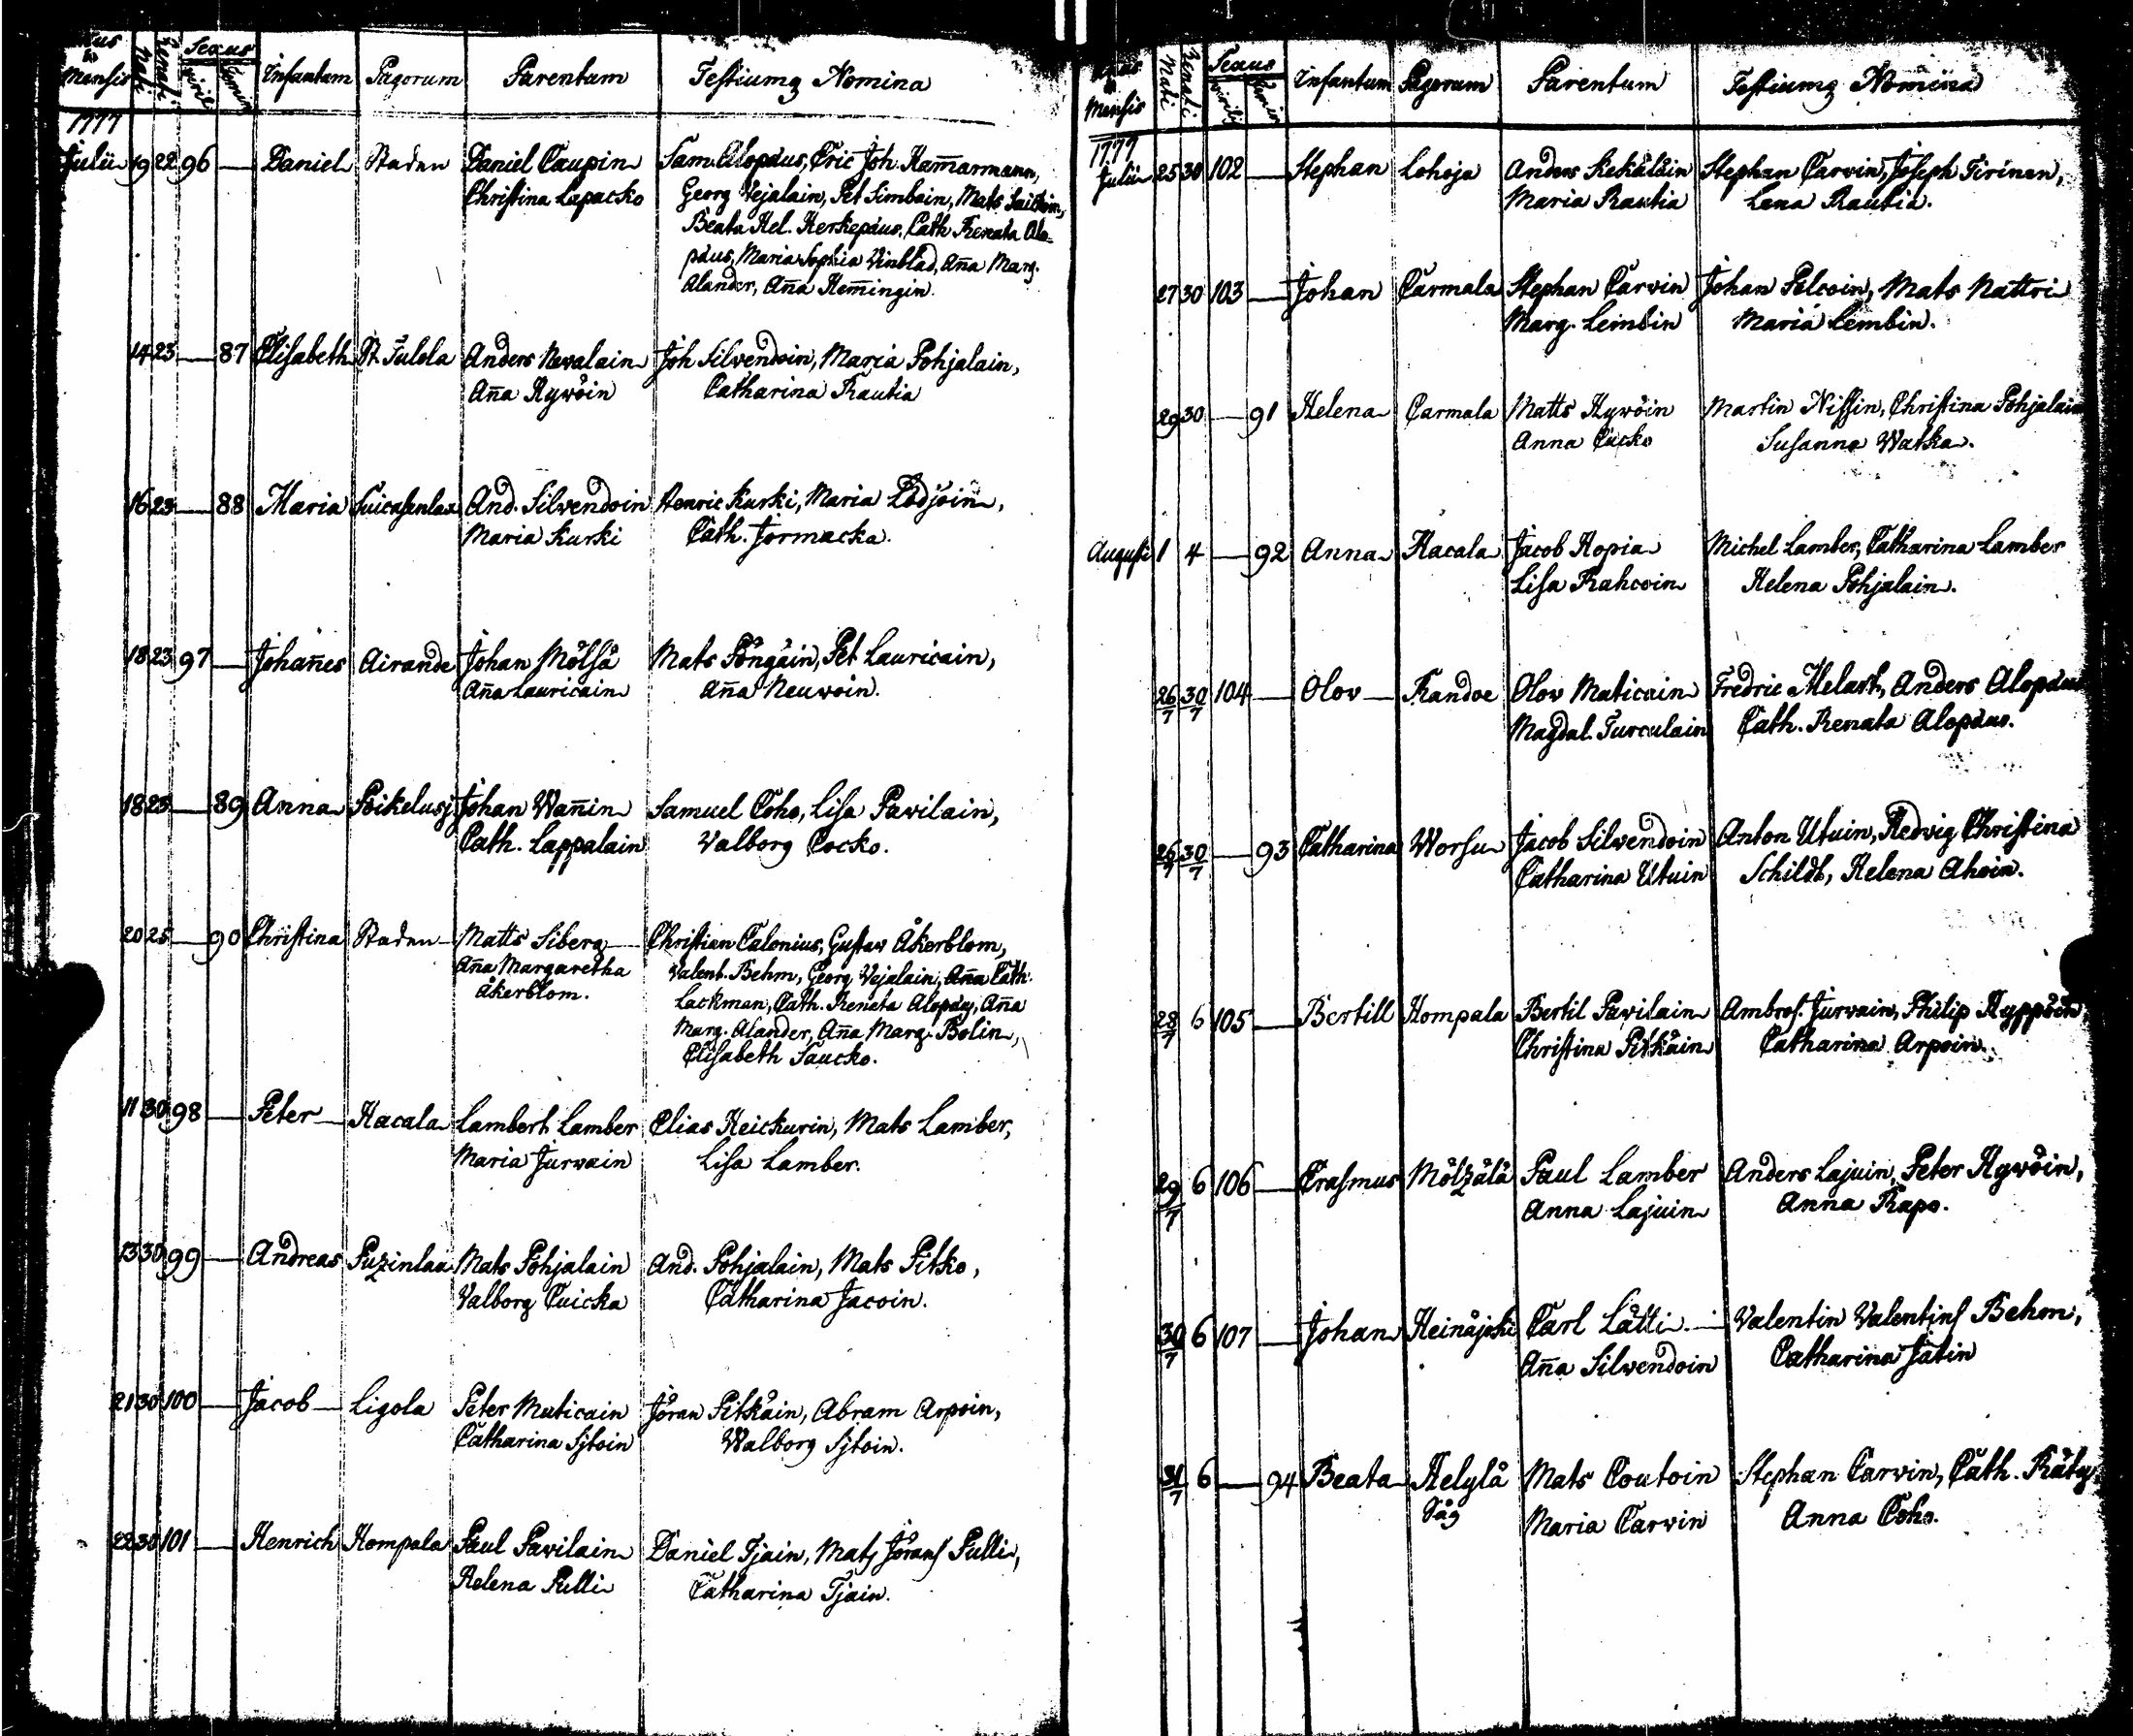 Mensis Nati Renati Sexus Infantum Pagorum Parentum Testiumq Nomina
viril
1777
Julii 19 22 96 — Daniel Staden Daniel Caupin Sam. Alopäus, Eric Joh. Ham̄armann,
Christina Lapacko Georg Vejalain, Pet Simbain, Mats
Beata Hel. Herkepäus, Cath Renata Alo-
päus, Maria Sophia Vinblad, An̄a Marg.
Alander, An̄a Hem̄ingin.
14 23 — 87 Elisabeth St. Tulola Anders Nevalain Joh Silvendoin, Maria Pohjalain,
An̄a Hywöin Catharina Rautia
16 23 — 88 Maria Suicasenlax And. Silvendoin Henric Kurki, Maria Lodjoin,
Maria Kurki Cath. Jormacka.
18 23 97 — Johan̄es Airande Johan Mölsä Mats Pöngäin, Pet Lauricain,
An̄a Lauricain An̄a Neuwoin.
18 23 — 89 Anna Poikelusj. Johan Wan̄in Samuel Coho, Lisa Pavilain,
Cath. Lappalain Valborg Cocko.
20 25 — 90 Christina Staden Matts Siberg Christian Calonius, Gustaw Åkerblom,
An̄a Margaretha Valent. Behm, Georg Vejalain, An̄a Cath.
Åkerblom. Lackman, Cath. Reneta Alopäg, An̄a
Marg. Alander, An̄a Marg. Bolin,
Elisabeth Saucko.
11 30 98 — Peter Hacala Lambert Lamber Elias Heickurin, Mats Lamber,
Maria Jurvain Lisa Lamber.
13 30 99 — Andreas Puzinlaa Mats Pohjalain And. Pohjalain, Mats Pitko,
Valborg Cuicka Catharina Jacoin.
21 30 100 — Jacob Ligola Peter Muticain Jöran Pitkäin, Abram Arpoin,
Catharina Sjtoin Walborg Sjtoin.
22 30 101 — Henrich Hompala Paul Pavilain Daniel Tjain, Mats Jörans Pulli,
Helena Pulli Catharina Tjain.
Mensis Nati Renati Sexus Infantum Pagorum Parentum Testiumq Nomina
virilis
1777
Julii 25 30 102 — Stephan Lohoja Anders Kekäläin Stephan Carvin, Joseph Tirinen,
Maria Rautia Lena Rautia.
27 30 103 — Johan Carmala Stephan Carvin Johan Pelcoin, Mats Nattri
Marg. Lembin Maria Lembin.
29 30 — 91 Helena Carmala Matts Hywöin Martin Nissin, Christina Pohjalain
Anna Cucko Susanna Watka.
Augusti 1 4 — 92 Anna Hacala Jacob Hopia Michel Lamber, Catharina Lamber
Lisa Rahcoin Helena Pohjalain.
26/7 30/7 104 — Olov Randoe Olov Maticain Fredric Melart, Anders Alopäus
Magdal. Turculain Cath. Renata Alopäus.
26/7 30/7 — 93 Catharina Worsu Jacob Silvendoin Anton Utuin, Hedvig Christina
Catharina Utuin Schildt, Helena Ahoin.
28/7 6 105 — Bertill Hompala Bertil Pavilain Ambros. Jurvain, Philip Hyppöin,
Christina Pitkäin Catharina Arpoin.
29/7 6 106 — Erasmus Mölzälä Paul Lamber Anders Lajuin, Peter Hywöin,
Anna Lajuin Anna Rapo.
30/7 6 107 — Johan Heinäjoki Carl Lätti Valentin Valentins Behm,
An̄a Silvendoin Catharina Jätin
31/7 6 — 94 Beata Helylä Mats Coutoin Stephan Carvin, Cath. Räty
Såg Maria Carvin Anna Coho.